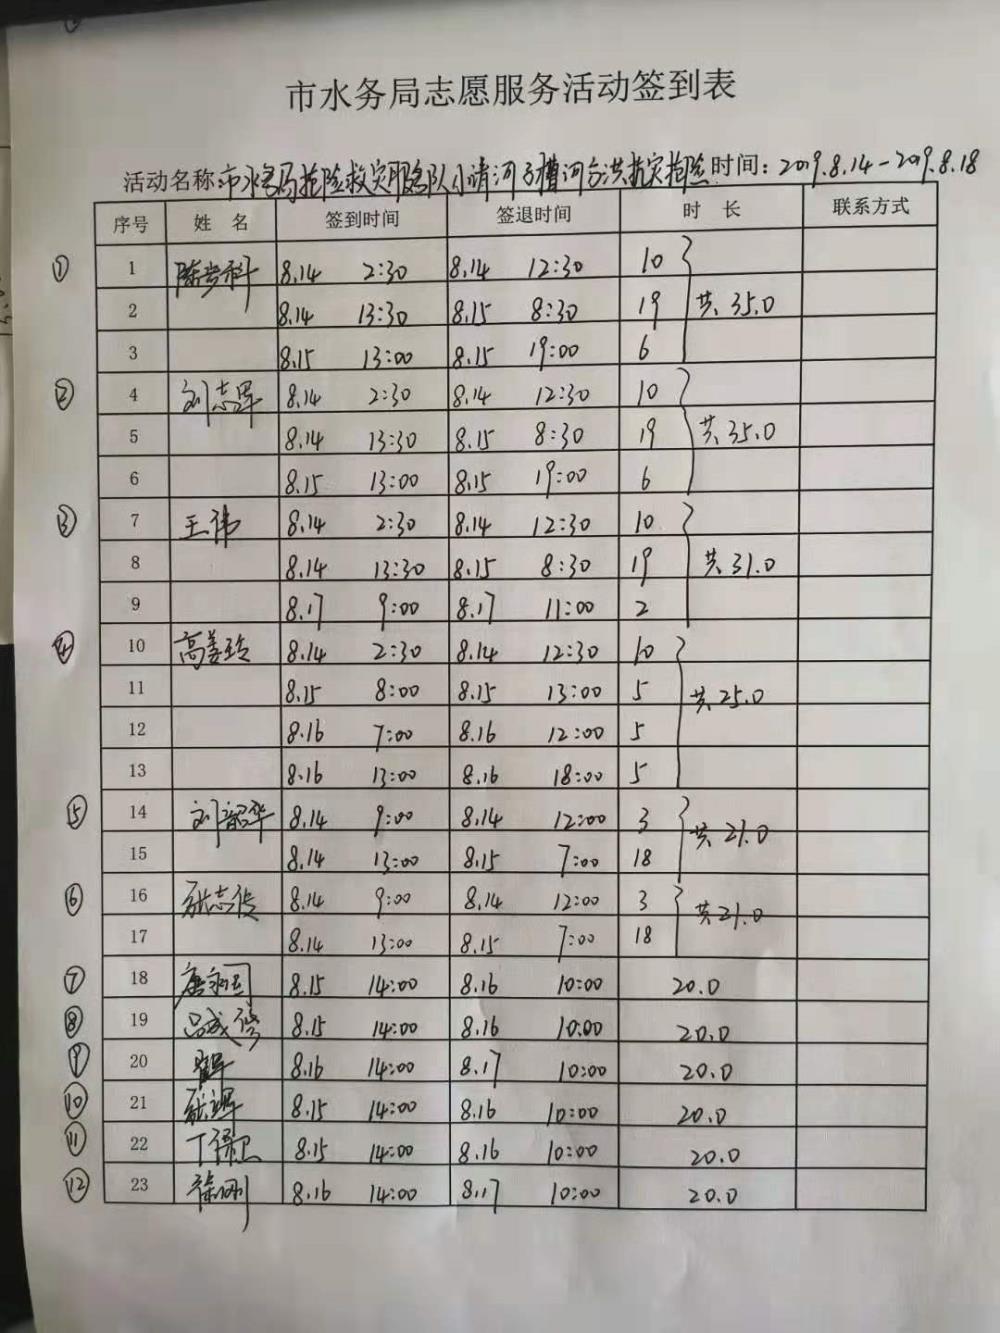 市水务局志愿服务活动签到表
活动名称 市水务局抢险救灾服务队小清河子槽河分洪抗灾抢险 时间：2019.8.14-2019.8.18
序号 姓 名 签到时间 签退时间 时 长 联系方式
① 1 8.14 2:30 8.14 12:30 10
2 8.14 13:30 8.15 8:30 19 共35.0
3 8.15 13:00 8.15 19:00 6
② 4 刘志军 8.14 2:30 8.14 12:30 10
5 8.14 13:30 8.15 8:30 19 共35.0
6 8.15 13:00 8.15 19:00 6
③ 7 王伟 8.14 2:30 8.14 12:30 10
8 8.14 13:30 8.15 8:30 19 共31.0
9 8.17 9:00 8.17 11:00 2
④ 10 高姜玲 8.14 2:30 8.14 12:30 10
11 8.15 8:00 8.15 13:00 5 共25.0
12 8.16 7:00 8.16 12:00 5
13 8.16 13:00 8.16 18:00 5
⑤ 14 刘韶华 8.14 9:00 8.14 12:00 3 共21.0
15 8.14 13:00 8.15 7:00 18
⑥ 16 8.14 9:00 8.14 12:00 3 共21.0
17 8.14 13:00 8.15 7:00 18
⑦ 18 8.15 14:00 8.16 10:00 20.0
⑧ 19 8.15 14:00 8.16 10:00 20.0
⑨ 20 8.16 14:00 8.17 10:00 20.0
⑩ 21 8.15 14:00 8.16 10:00 20.0
⑪ 22 8.15 14:00 8.16 10:00 20.0
⑫ 23 8.16 14:00 8.17 10:00 20.0